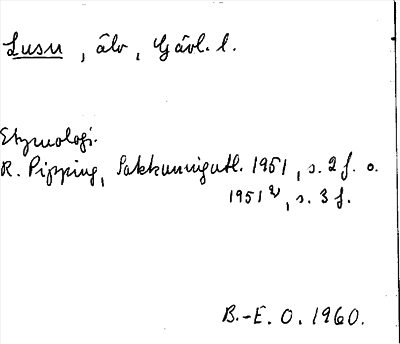 Lusn, älv, Gävl. l.
Etymologi.
R. Pipping, Sakkunnigutl. 1951, s. 2 f. o.
1951 2), s. 3 f.
B.-E. O. 1960.